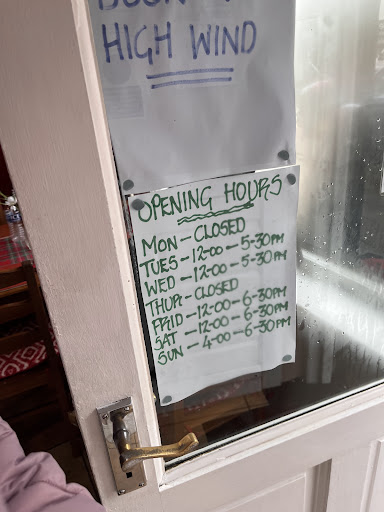 HIGH WIND
OPENING HOURS
MON - CLOSED
TUES - 12-00 - 5-30PM
WED - 12-00 - 5-30PM
THUR - CLOSED
FRID - 12-00 - 6-30PM
SAT - 12-00 - 6-30PM
SUN - 4-00 - 6-30PM